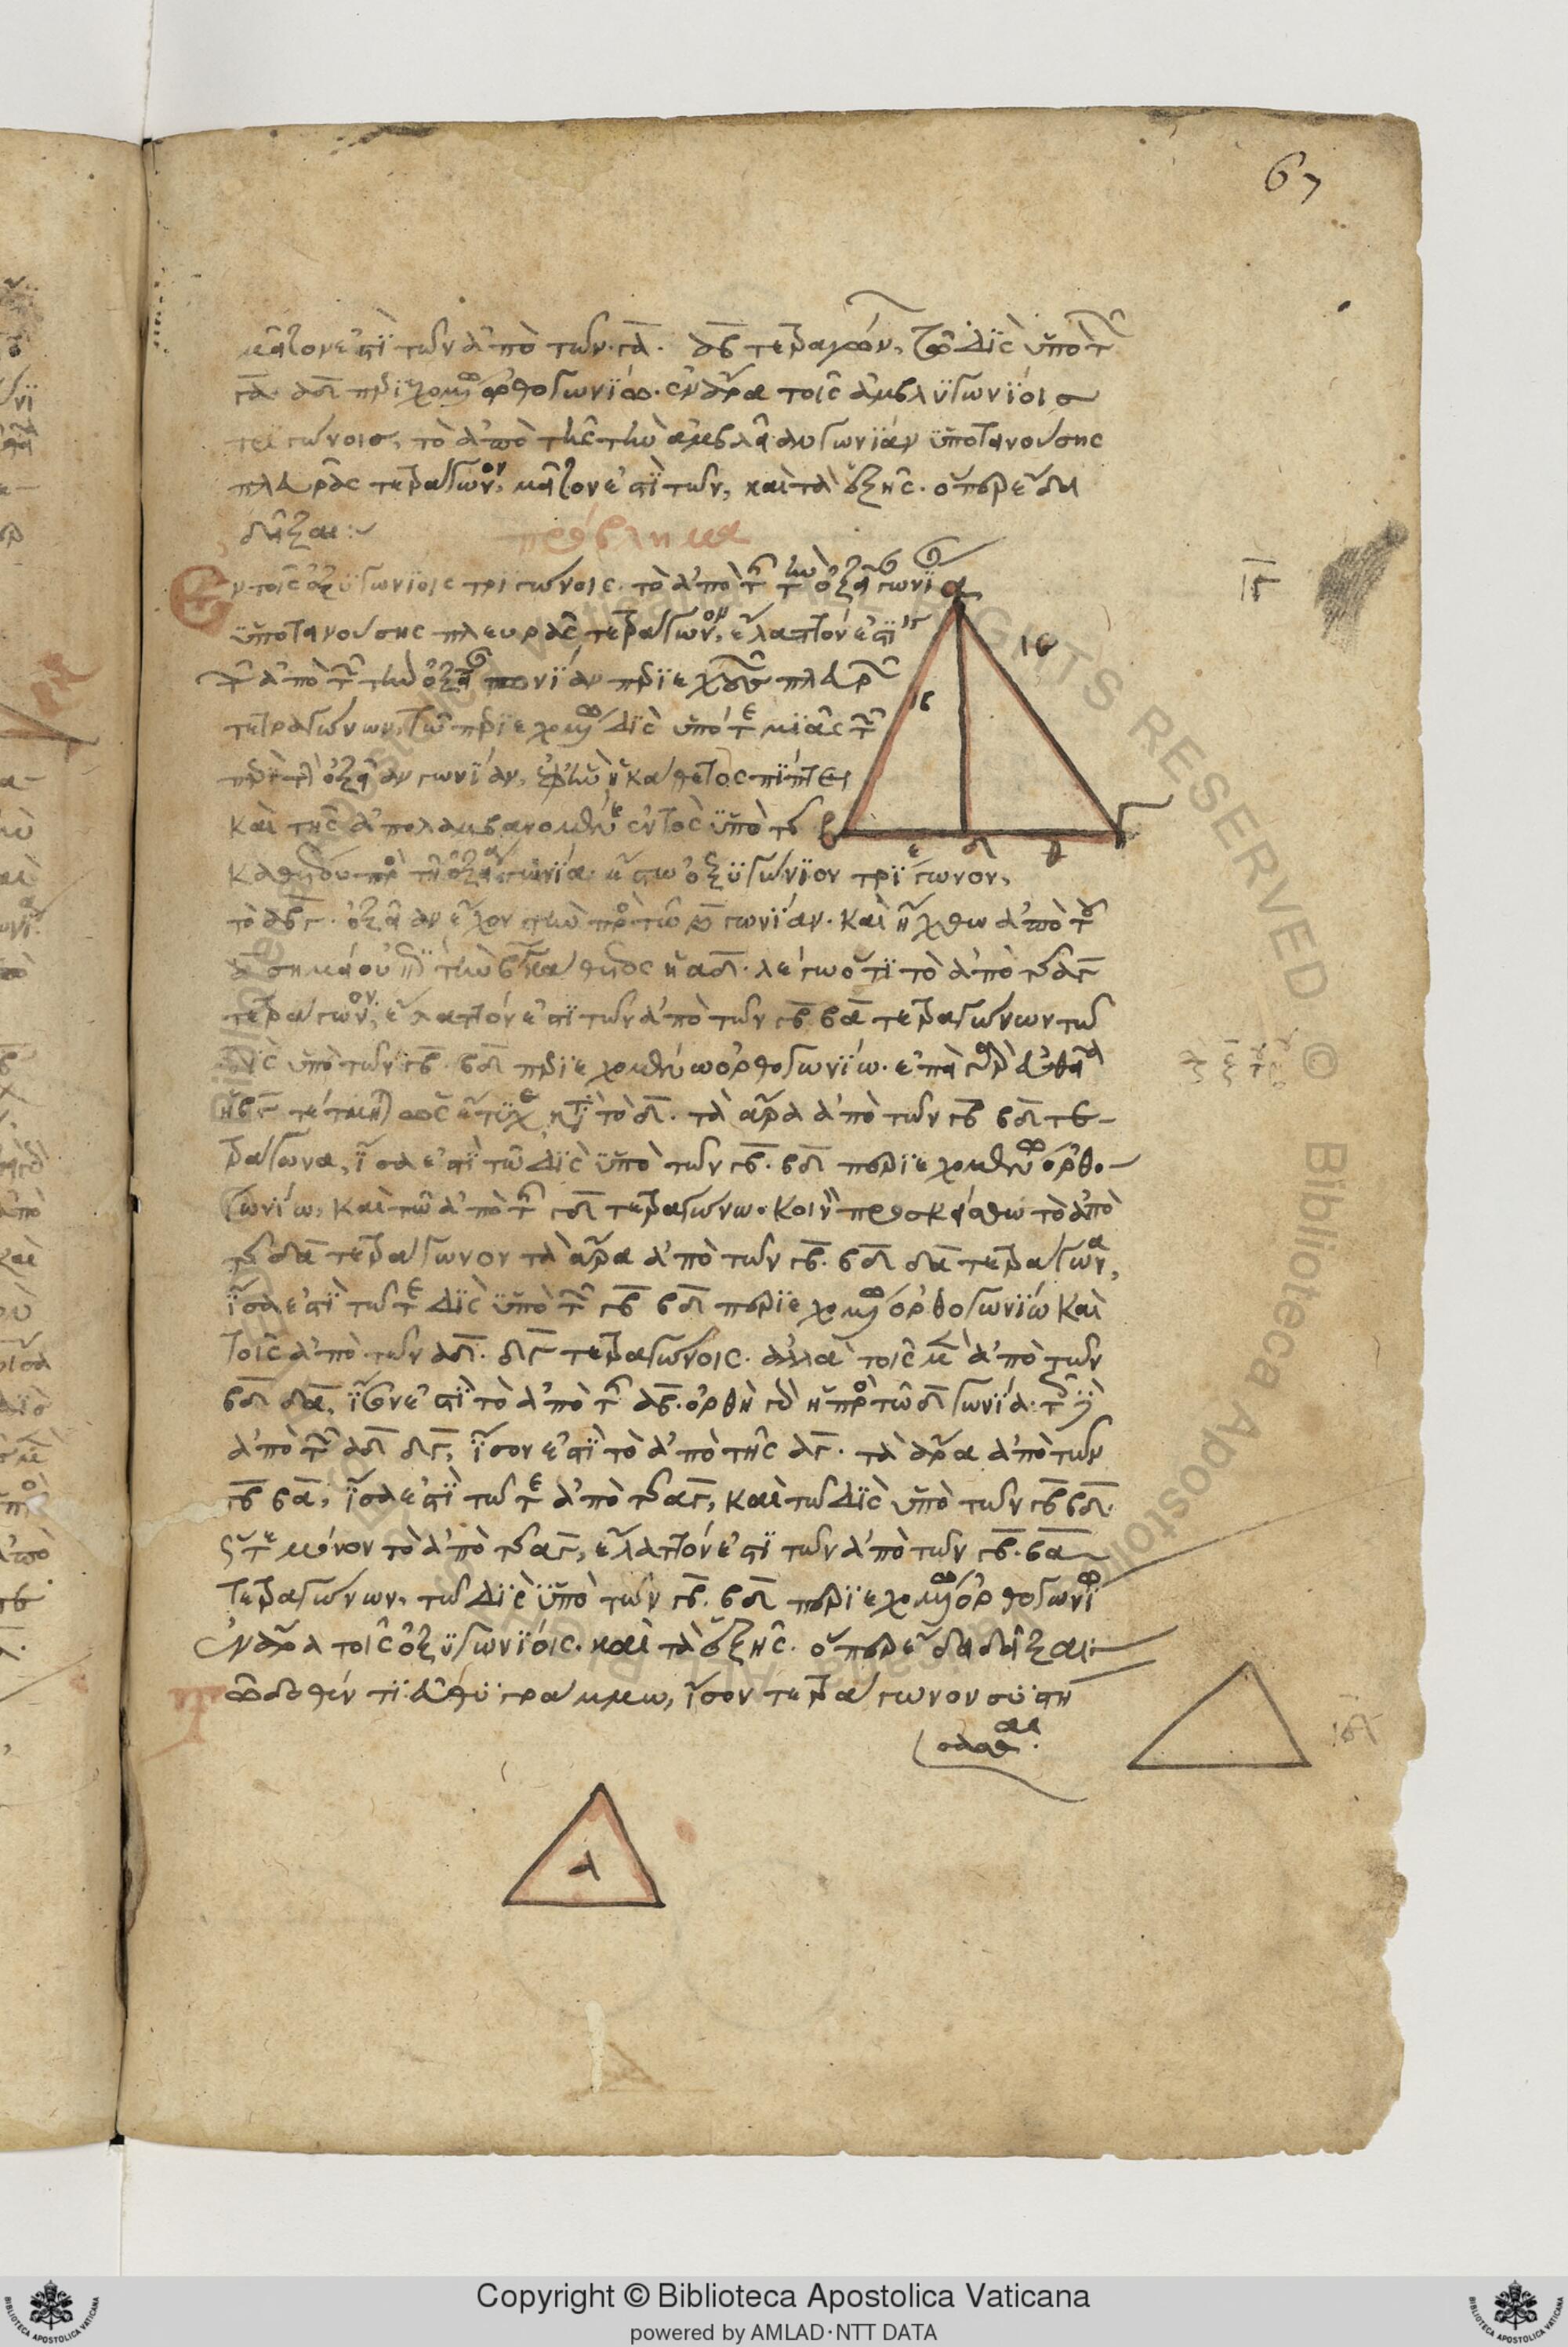 67
μεῖζον ἐστὶ τῶν ἀπὸ τῶν γα. αβ τετραγώνων, τῶ δὶς ὑπὸ τῶν
γα αδ περιεχομένω ὀρθογωνίω. ἐν ἄρα τοῖς ἀμβλυγωνίοις
τριγώνοις, τὸ ἀπὸ τῆς τὴν ἀμβλεῖαν γωνίαν ὑποτεινούσης
πλευρᾶς τετράγωνον, μεῖζον ἐστὶ τῶν, καὶ τὰ ἑξῆς. ὅπερ ἔδει
δεῖξαι:
πρόβλημα
Ἐν τοῖς ὀξυγωνίοις τριγώνοις. τὸ ἀπὸ τῆς τὴν ὀξεῖαν γωνίαν
ὑποτεινούσης πλευρᾶς τετράγωνον, ἔλαττόν ἐστι
τῶν ἀπὸ τῶν τὴν ὀξεῖαν γωνίαν περιεχουσῶν πλευρῶν
τετραγώνων, τῶ περιεχομένω δὶς ὑπό τε μιᾶς τῶν
περὶ τὴν ὀξεῖαν γωνίαν, ἐφ' ἣν ἡ κάθετος πίπτει
καὶ τῆς ἀπολαμβανομένης ἐντὸς ὑπὸ τῆς
καθέτου πρὸς τῆ ὀξεία γωνία. ἔστω ὀξυγώνιον τρίγωνον,
τὸ αβγ. ὀξεῖαν ἔχον τὴν πρὸς τῶ β γωνίαν. καὶ ἤχθω ἀπὸ τοῦ
α σημείου ἐπὶ τὴν βγ κάθετος ἡ αδ. λέγω ὅτι τὸ ἀπὸ τῆς αγ
τετράγωνον, ἔλαττόν ἐστι τῶν ἀπὸ τῶν γβ βα τετραγώνων τῶ
δὶς ὑπὸ τῶν γβ. βδ περιεχομένω ὀρθογωνίω. ἐπεὶ γὰρ εὐθεῖα
ἡ βγ τέτμηται ὡς ἔτυχε κατὰ τὸ δ. τὰ ἄρα ἀπὸ τῶν γβ βδ τε-
τράγωνα, ἴσα ἐστὶ τῶ δὶς ὑπὸ τῶν γβ. βδ περιεχομένω ὀρθο-
γωνίω, καὶ τῶ ἀπὸ τῆς γδ τετραγώνω. κοινὸν προσκείσθω τὸ ἀπὸ
τῆς δα τετράγωνον τὰ ἄρα ἀπὸ τῶν γβ. βδ δα τετράγωνα,
ἴσα ἐστὶ τῶ τε δὶς ὑπὸ τῶν γβ βδ περιεχομένω ὀρθογωνίω καὶ
τοῖς ἀπὸ τῶν αδ. δγ τετραγώνοις. ἀλλὰ τοῖς μὲν ἀπὸ τῶν
βδ δα, ἴσον ἐστὶ τὸ ἀπὸ τῆς αβ. ὀρθὴ γὰρ ἡ πρὸς τῶ δ γωνία. τοῖς δὲ
ἀπὸ τῶν αδ δγ, ἴσον ἐστὶ τὸ ἀπὸ τῆς αγ. τὰ ἄρα ἀπὸ τῶν
γβ βα, ἴσα ἐστὶ τῶ τε ἀπὸ τῆς αγ, καὶ τῶ δὶς ὑπὸ τῶν γβ βδ.
ὥστε μόνον τὸ ἀπὸ τῆς αγ, ἔλαττόν ἐστι τῶν ἀπὸ τῶν γβ. βα
τετραγώνων, τῶ δὶς ὑπὸ τῶν γβ. βδ περιεχομένω ὀρθογωνίω
ἐν ἄρα τοῖς ὀξυγωνίοις. καὶ τὰ ἑξῆς. ὅπερ ἔδει δεῖξαι:
Τῶ δοθέντι εὐθυγράμμω, ἴσον τετράγωνον συστή
σασθαι.
α
ιγ
ιε
β
δ
θ
γ
ιγ
ιδ
α
Copyright © Biblioteca Apostolica Vaticana
powered by AMLAD·NTT DATA